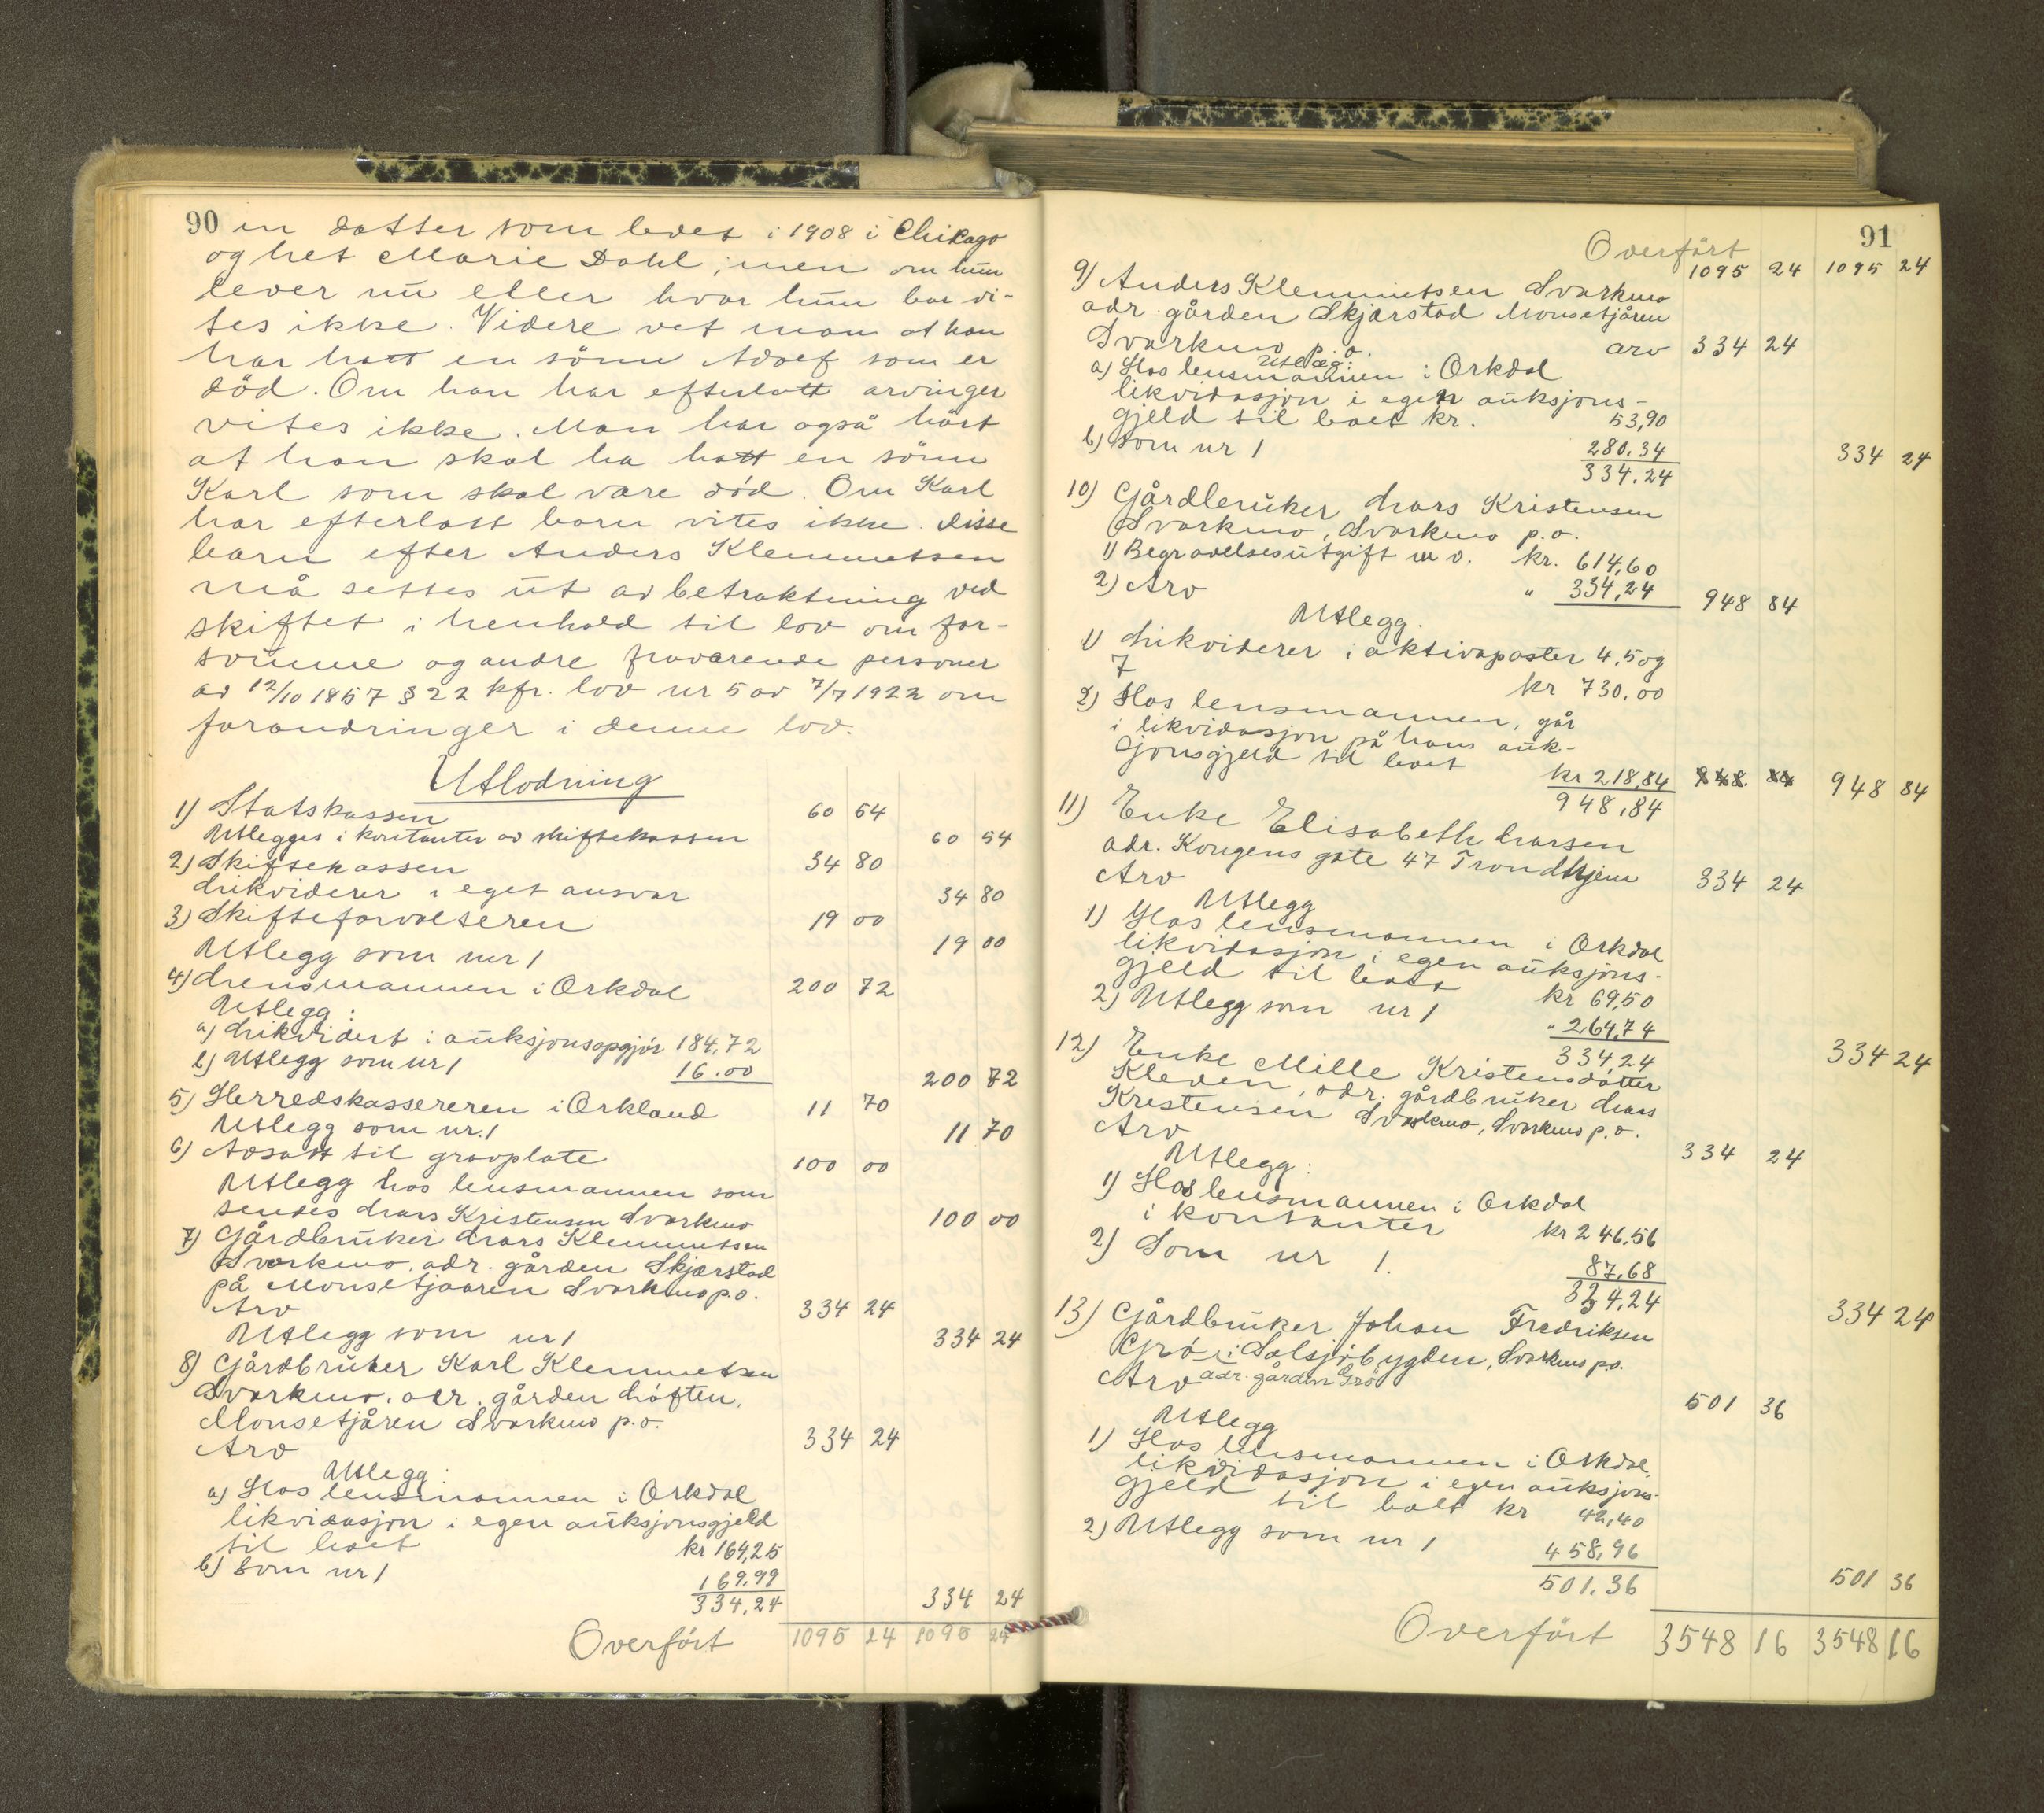 90 en datter som levet i 1908 i Chikago
og het Marie Dahl; men om hun
lever nu eller hvor hun bor vi-
tes ikke. Videre vet man at han
har hatt en sönn Adolf som er
död. Om han har efterlatt arvinger
vites ikke. Man har også hört
at han skal ha hatt en sönn
Karl som skal være död. Om Karl
har efterlatt barn vites ikke. Disse
barn efter Anders Klemmetsen
må settes ut av betraktning ved
skiftet i henhold til lov om for-
svunne og andre fraværende personer
av 12/10 1857 § 22 kfr. lov nr 5 av 7/7 1922 om
forandringer i denne lov.
Utlodning
1) Statskassen 60 54
Utlegges i kontanter av skiftekassen 60 54
2) Skiftekassen 34 80
Likviderer i eget ansvar 34 80
3) Skifteforvalteren 19 00
Utlegg som nr 1 19 00
4) Lensmannen i Orkdal 200 72
Utlegg:
a) Likvidert i auksjonsopgjör 184,72
b) Utlegg som nr 1 16.00 200 72
5) Herredskassereren i Orkland 11 70
Utlegg som nr. 1 11 70
6) Avsatt til gravplate 100 00
Utlegg hos lensmannen som
sendes Lars Kristensen Svorkmo 100 00
7) Gårdbruker Lars Klemmetsen
Svorkmo, adr. gården Skjærstad
på Monsetjaaren Svorkmo p.o.
Arv 334 24
Utlegg som nr 1 334 24
8) Gårdbruker Karl Klemmetsen
Svorkmo, adr. gården Löften,
Monsetjåren Svorkmo p.o.
Arv 334 24
Utlegg:
a) Hos lensmannen i Orkdal
likvidasjon i egen auksjonsgjeld
til boet kr 164,25
b) Som nr 1 169.99
334,24 334 24
Overfört 1095 24 1095 24
91
Overfört 1095 24 1095 24
9) Anders Klemmetsen Svorkmo
adr. gården Skjærstad Monsetjåren
Svorkmo p.o. arv 334 24
Utlegg:
a) Hos lensmannen i Orkdal
likvidasjon i egen auksjons-
gjeld til boet kr. 53,90
b) Som nr 1 280.34 334 24
334.24
10) Gårdbruker Lars Kristensen
Svorkmo, Svorkmo p.o.
1) Begravelsesutgift m v. kr. 614,60
2) Arv " 334,24 948 84
Utlegg.
1) Likviderer i aktivaposter 4, 5 og
7 kr 730.00
2) Hos lensmannen, går
i likvidasjon på hans auk-
sjonsgjeld til boet kr 218,84 948. 84 948 84
948,84
11) Enke Elisabeth Larsen
adr. Kongens gate 47 Trondhjem
Arv 334 24
Utlegg
1) Hos lensmannen i Orkdal
likvidasjon i egen auksjons-
gjeld til boet kr 69,50
2) Utlegg som nr 1 " 264,74
334,24 334 24
12) Enke Mille Kristensdatter
Kleven, adr. gårdbruker Lars
Kristensen Svorkmo, Svorkmo p.o.
Arv 334 24
Utlegg:
1) Hos lensmannen i Orkdal
i kontanter kr 246.56
2) Som nr 1. 87,68
334,24 334 24
13) Gårdbruker Johan Fredriksen
Grö i Solsjöbygden, Svorkmo p.o.
Arv adr. gården Grö 501 36
Utlegg
1) Hos lensmannen i Orkdal,
likvidasjon i egen auksjons-
gjeld til boet kr 42,40
2) Utlegg som nr 1 458,96
501.36 501 36
Overfört 3548 16 3548 16